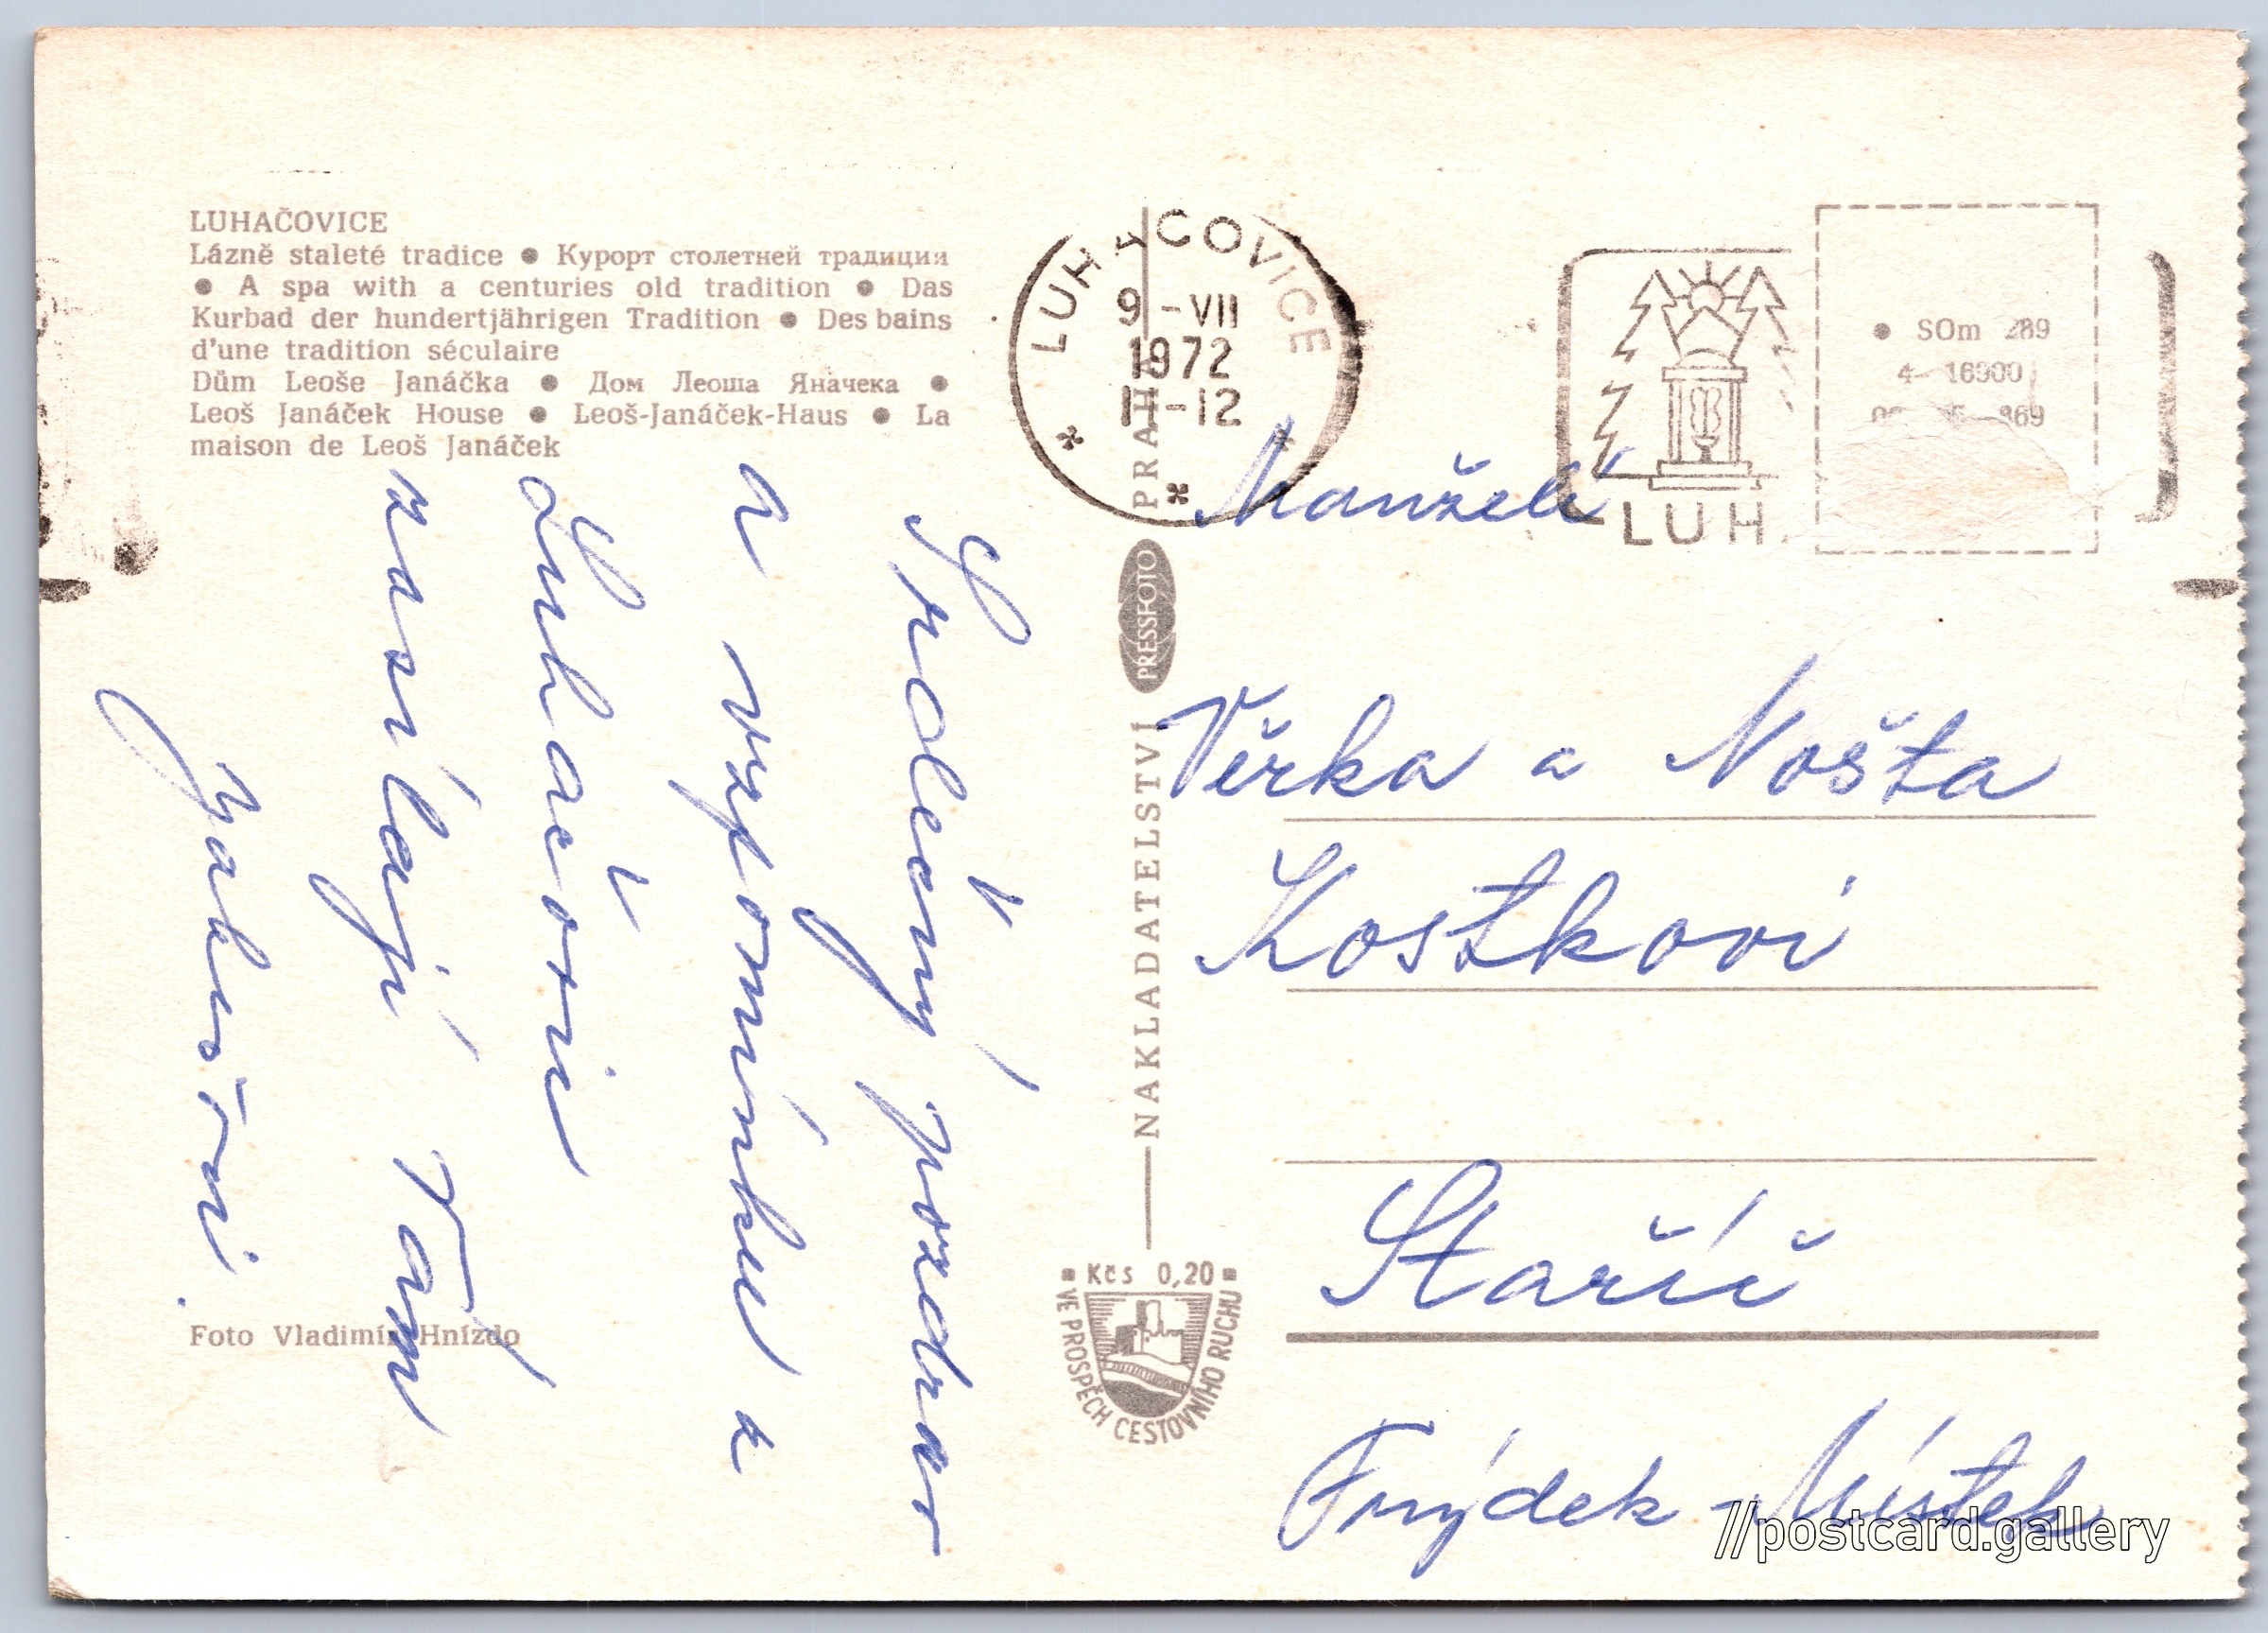 LUHAČOVICE
Lázně staleté tradice ● Курорт столетней традиции
● A spa with a centuries old tradition ● Das
Kurbad der hundertjährigen Tradition ● Des bains
d'une tradition séculaire
Dům Leoše Janáčka ● Дом Леоша Яначека ●
Leoš Janáček House ● Leoš-Janáček-Haus ● La
maison de Leoš Janáček
Srdečný pozdrav
a vzpomínku z
Luhačovic
zasílají Vám
Foto Vladimír Hnízdo
LUHAČOVICE
9 -VII
1972
11-12
NAKLADATELSTVÍ PRESSFOTO PRAHA
Kčs 0,20
VE PROSPĚCH CESTOVNÍHO RUCHU
LUH
● SOm 289
Manželé
Věrka a Nošta
Kostkovi
Staříč
Frýdek-Místek
//postcard.gallery